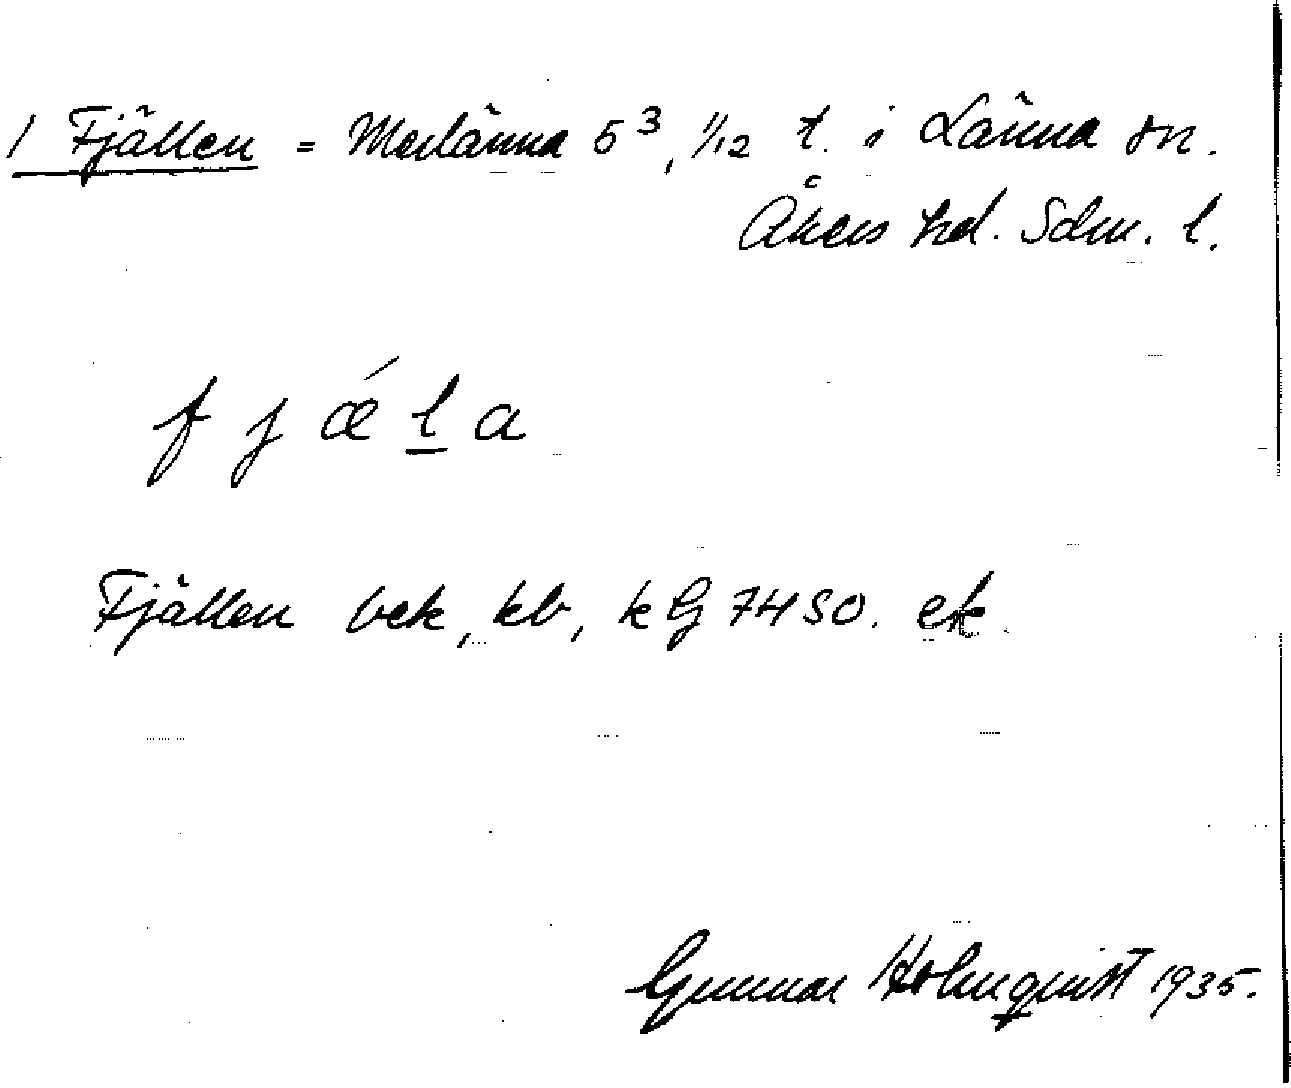 1 Fjällen = Merlänna 5³, 1/12 t. i Länna sn.
Åkers hd. Sdm. l.
f j ǽ l̲ a
Fjällen bek, kb, k G 7450. ek
Gunnar Holmquist 1935.